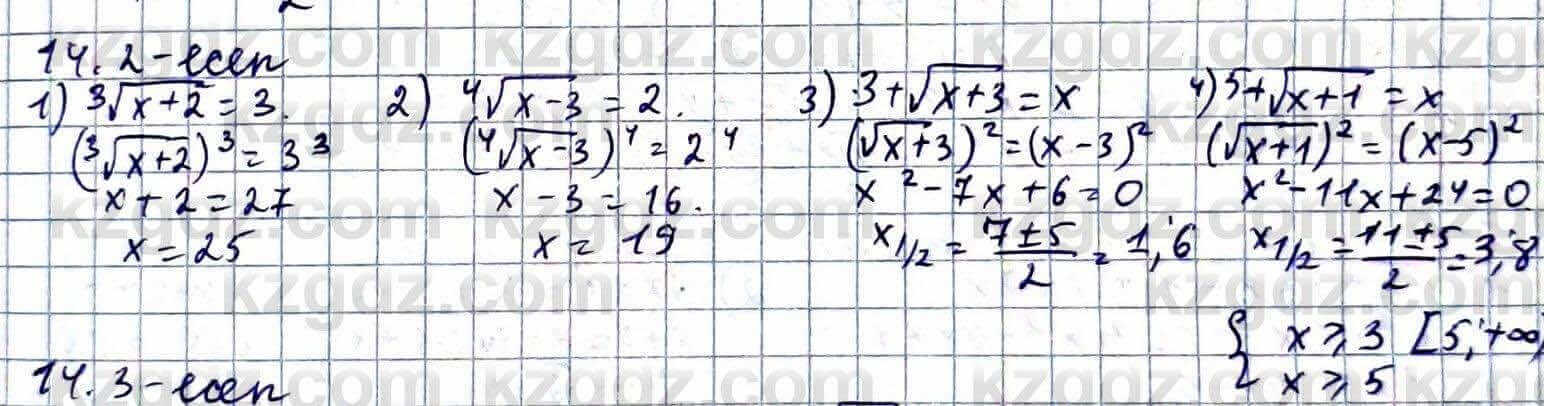 14.2-есеп
1) ³√(x+2) = 3.
(³√(x+2))³ = 3³
x + 2 = 27
x = 25
2) ⁴√(x-3) = 2.
(⁴√(x-3))⁴ = 2⁴
x - 3 = 16.
x = 19
3) 3+√(x+3) = x
(√x+3)² = (x-3)²
x² - 7x + 6 = 0
x1/2 = (7±5)/2 = 1; 6
4) 5+√(x+1) = x
(√(x+1))² = (x-5)²
x² - 11x + 24 = 0
x1/2 = (11±5)/2 = 3; 8
{ x ⩾ 3 [5; +∞)
x ⩾ 5
14.3-есеп
kzgdz.com